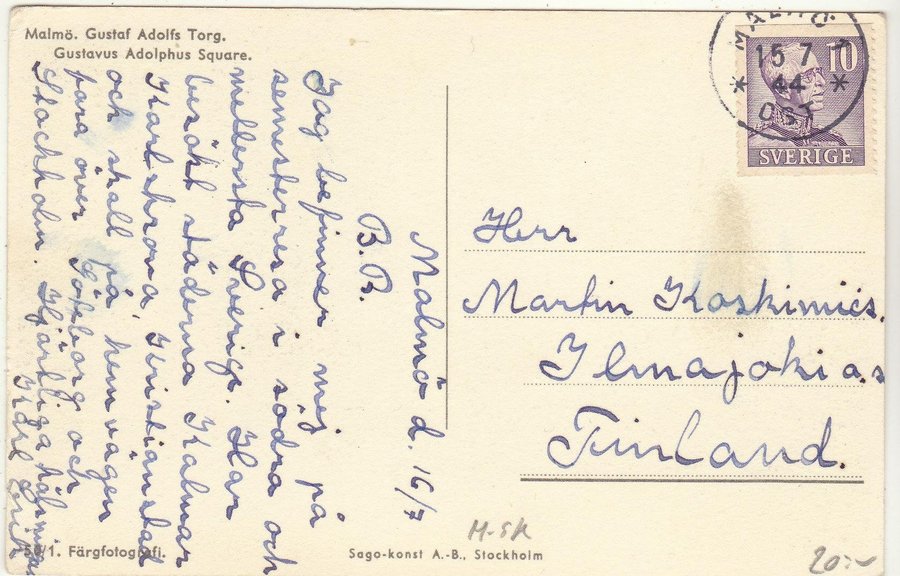 Malmö. Gustaf Adolfs Torg.
Gustavus Adolphus Square.
MALMÖ 1
15 7
* 44 *
ÖST
10
SVERIGE
Malmö d. 16/7
B.B.
Jag befinner mej på
semesterresa i södra och
mellersta Sverige. Har
besökt städerna Kalmar
Karlskrona, Kristianstad
och skall på hemvägen
fara över Göteborg och
Stockholm. Hjärtliga hälsningar
Karl Erik
Herr
Martin Koskimies.
Ilmajoki a.s
Finland.
50/1. Färgfotografi.
Sago-konst A.-B., Stockholm
H-SK
20:-